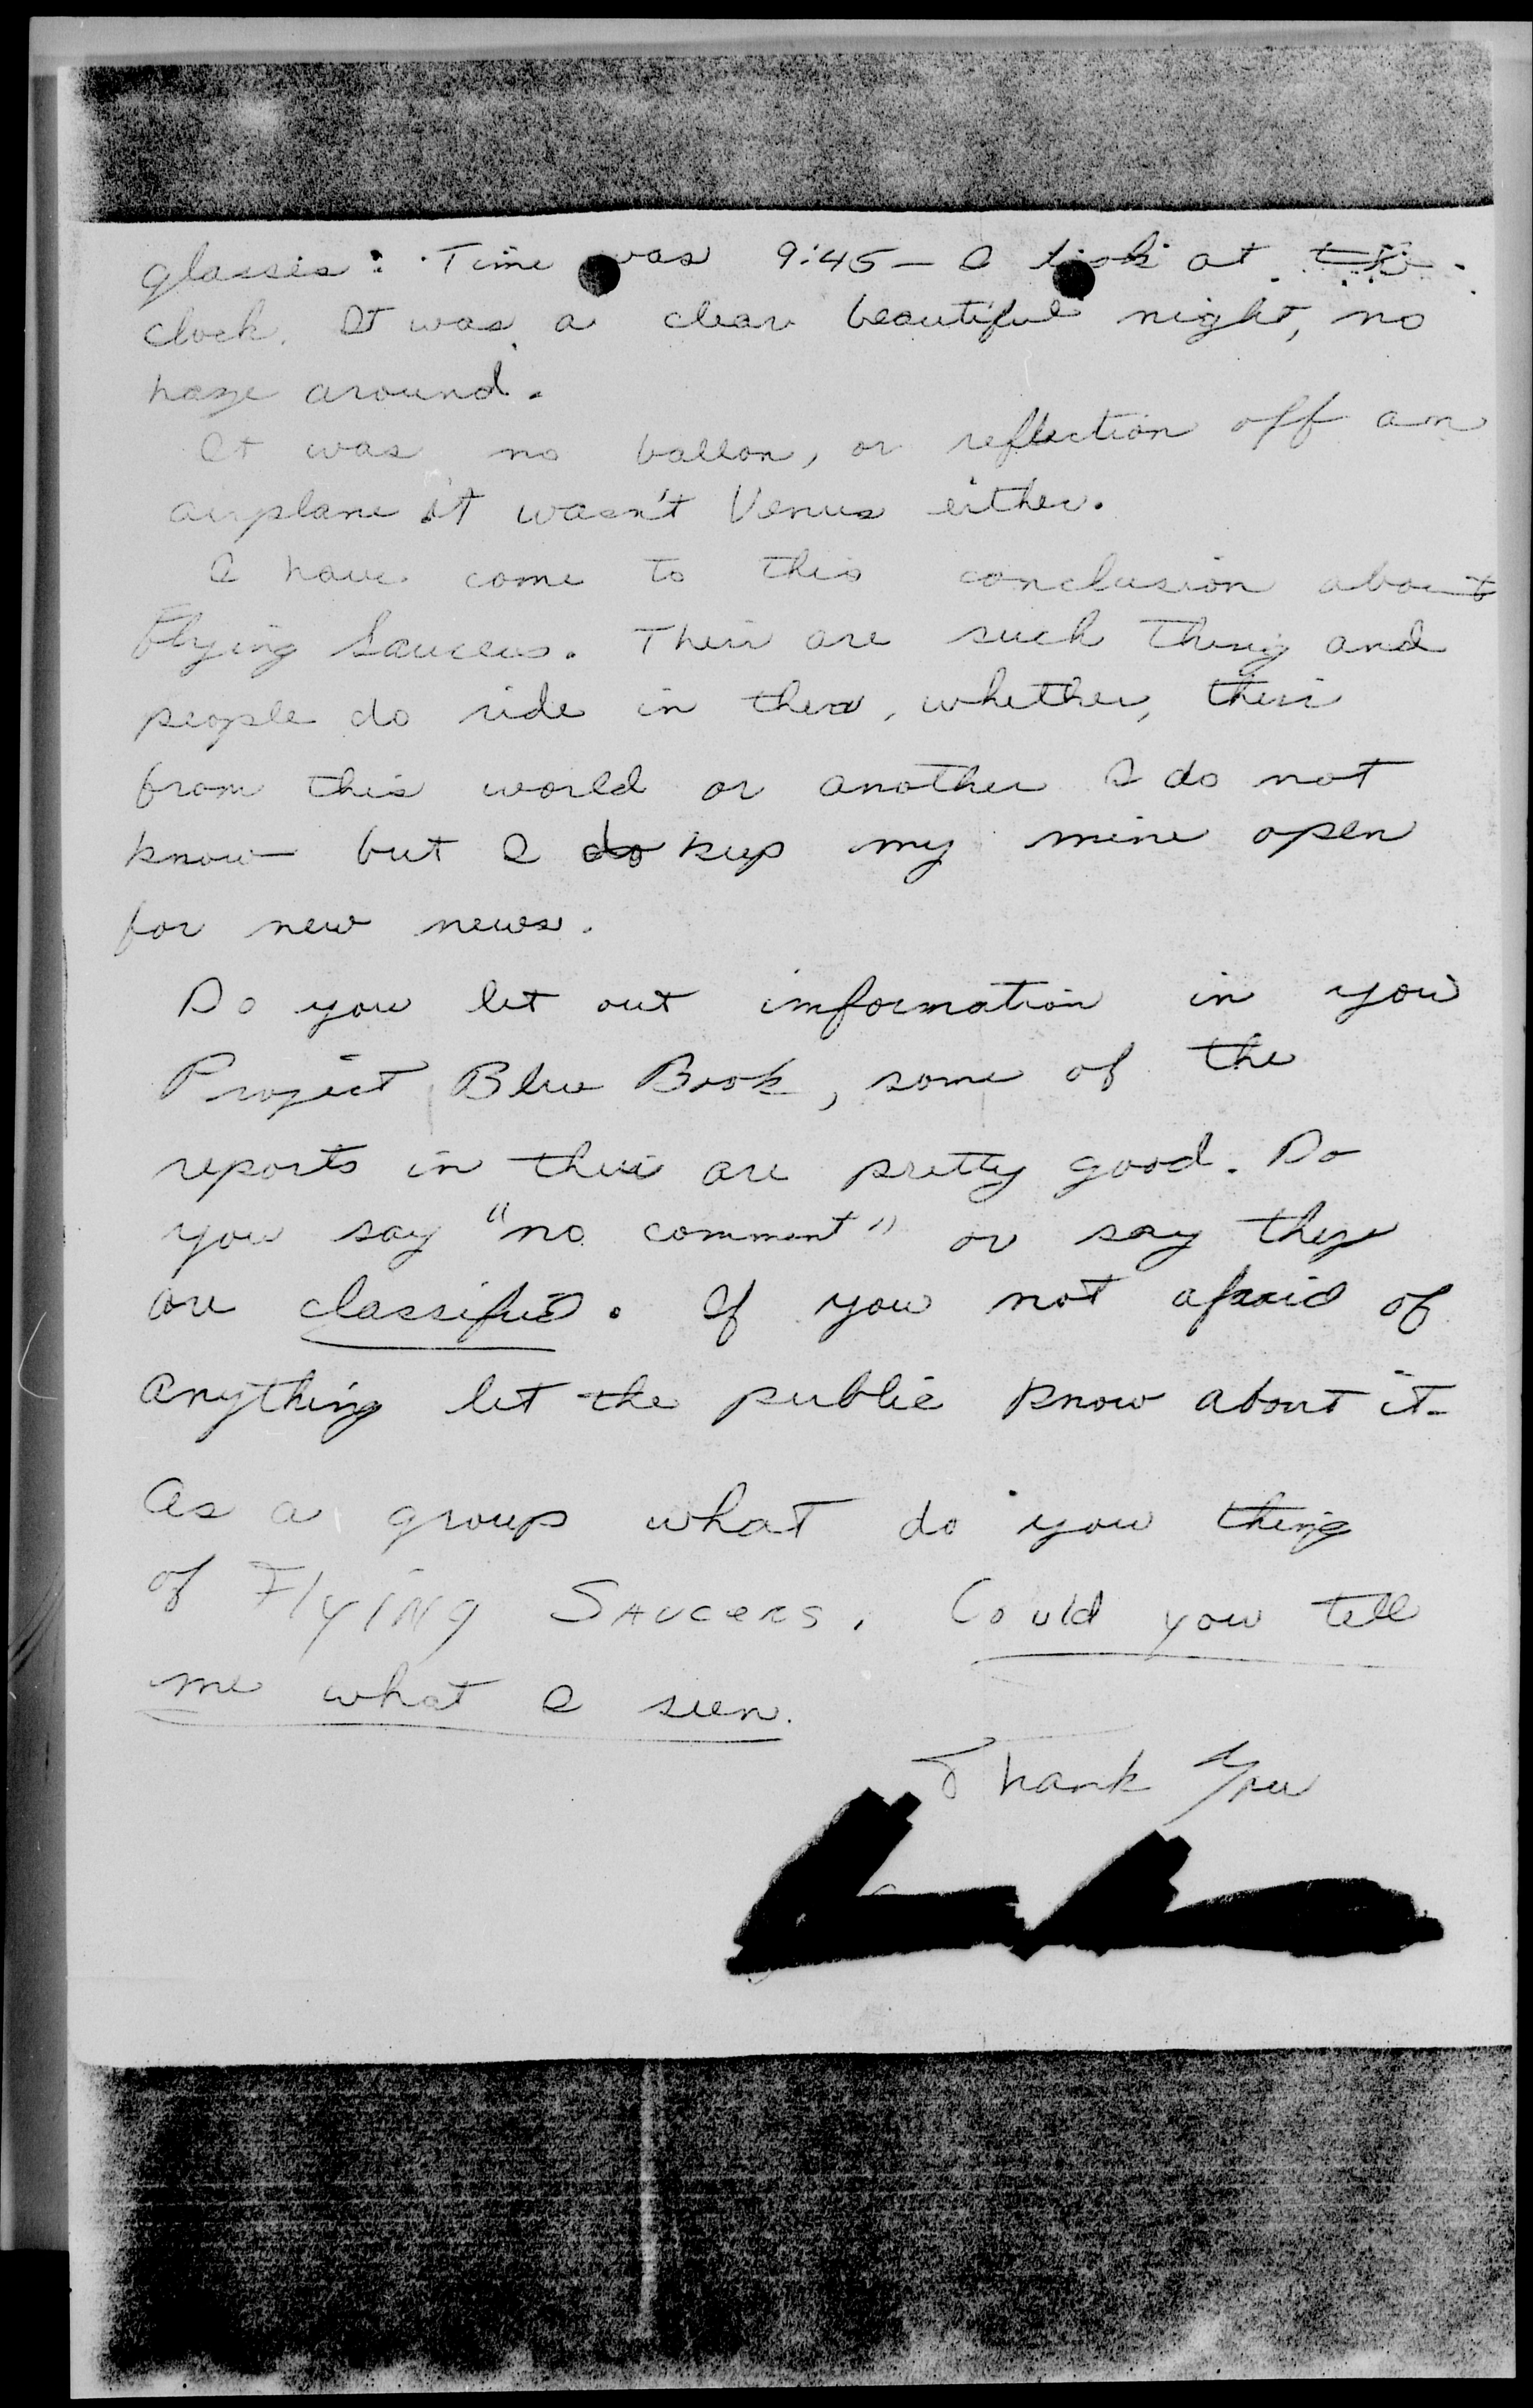 glasses: Time was 9:45 - I look at the
clock. It was a clear beautiful night, no
haze around.
It was no ballon, or reflection off an
airplane it wasn't Venus either.
I have come to this conclusion about
Flying Saucers. Their are such thing and
people do ride in them, whether, their
from this world or another I do not
know but I do keep my mine open
for new news.
Do you let out information in your
Project Blue Book, some of the
reports in their are pretty good. Do
you say "no comment" or say they
are classified. If you not afraid of
anything let the public know about it-
As a group what do you thing
of Flying Saucers. Could you tell
me what I seen.
Thank You